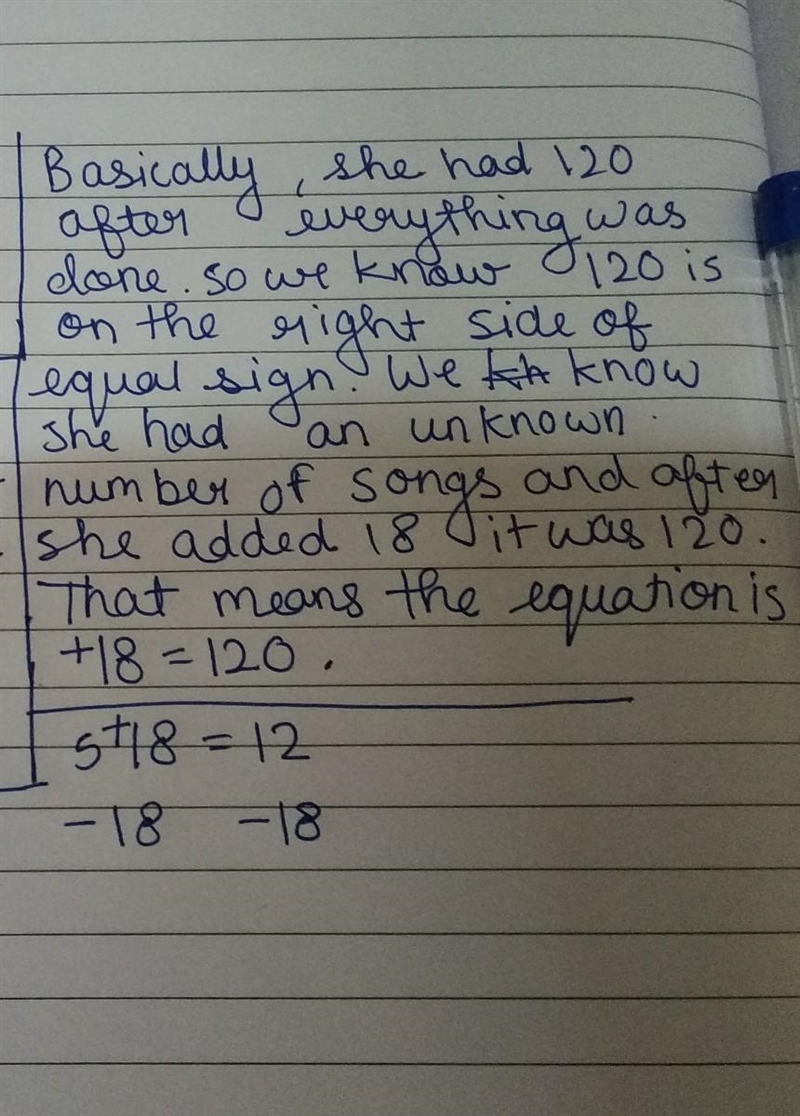 Basically, she had 120
after everything was
done. so we know 120 is
on the right side of
equal sign. We know
she had an unknown
number of songs and after
she added 18 it was 120.
That means the equation is
+18 = 120.
s+18 = 12
-18 -18